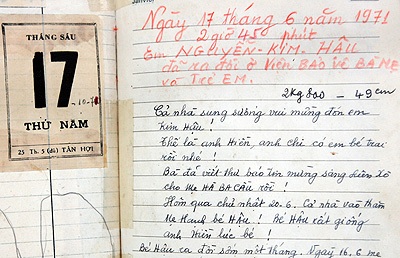 THÁNG SÁU
17
THỨ NĂM
25 Th. 5 (đủ) TÂN HỢI
Ngày 17 tháng 6 năm 1971
2 giờ 45 phút
Em NGUYỄN-KIM-HẬU
đã ra đời ở Viện BẢO VỆ BÀ MẸ
và TRẺ EM.
2kg800 – 49cm
Cả nhà sung sướng vui mừng đón em
Kim Hậu!
Thế là anh Hiền, anh chị có em bé trai
rồi nhé!
Ba đã viết thư báo tin mừng sang Liên Xô
cho Mẹ HÀ BA CẦU rồi!
Hôm qua chủ nhật 20.6. Cả nhà vào thăm
Mẹ Hạnh bé HẬU! Bé HẬU rất giống
anh Hiền lúc bé!
Bé Hậu ra đời sớm một tháng. Ngày 16.6 mẹ